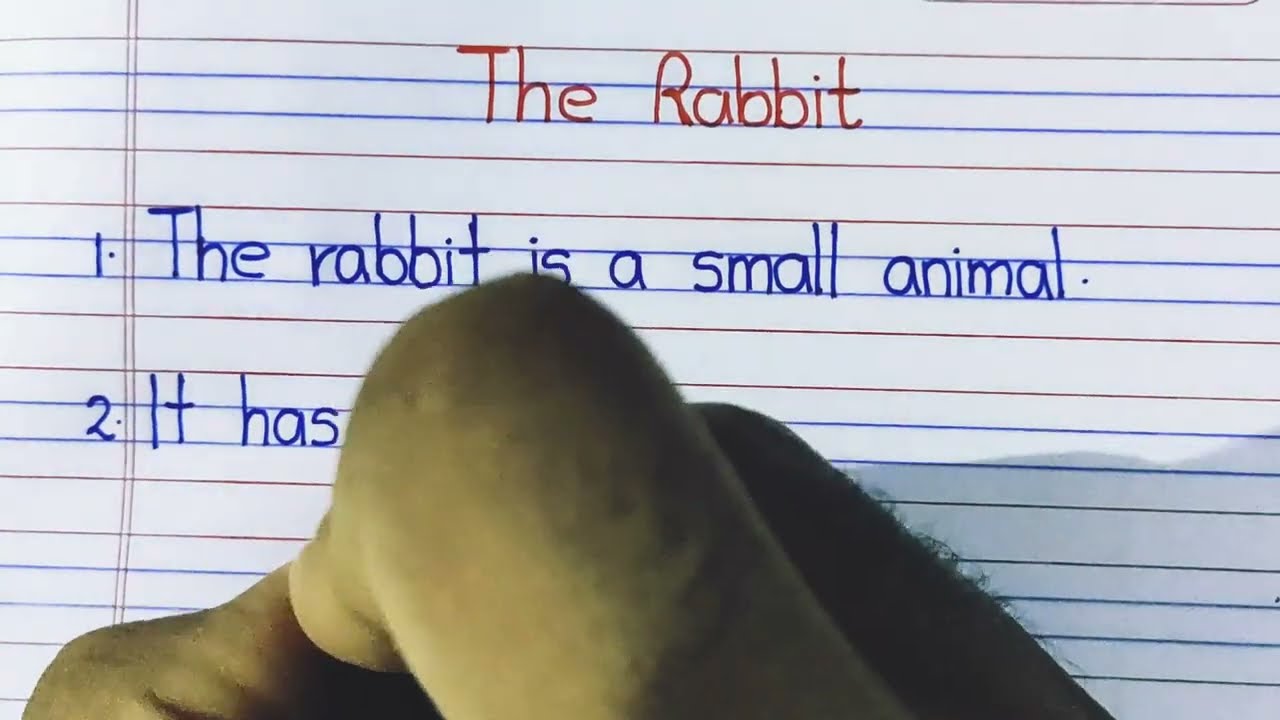 The Rabbit
1. The rabbit is a small animal.
2. It has